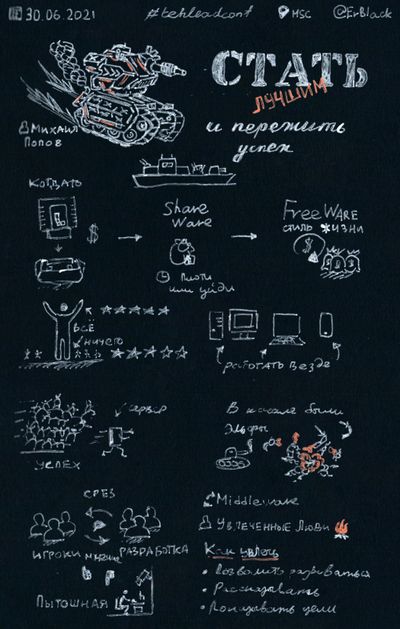 30.06.2021 #tehleadconf MSC @ErBlack
СТАТЬ
ЛУЧШИМ
и пережить
успех
МИХАИЛ
ПОПОВ
КОГДАТО
$
Share
Ware
ПЛАТИ
ИЛИ УЙДИ
FreeWare
СТИЛЬ ЖИЗНИ
$
ВСЁ
НИЧЕГО
РАБОТАТЬ ВЕЗДЕ
УСПЕХ
сервер
В начале были
Эльфы
СРЕЗ
ИГРОКИ
РАЗРАБОТКА
ПЫТОШНАЯ
Middleware
УВЛЕЧЕННЫЕ ЛЮДИ
Как увлечь
• Рассказывать